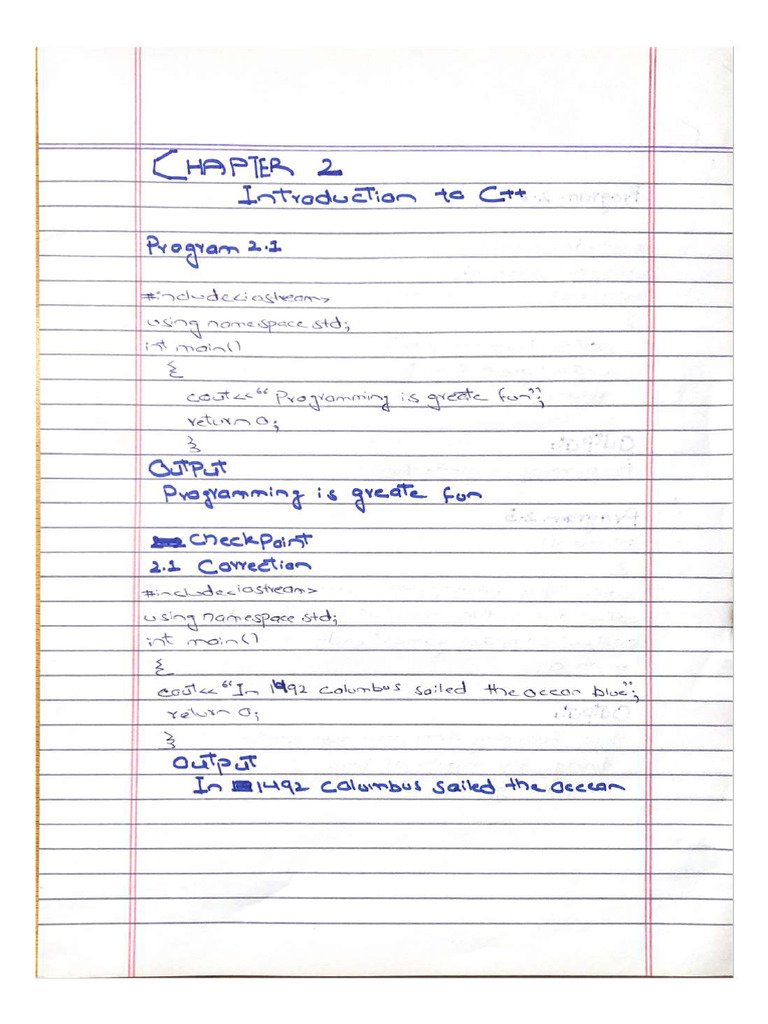 CHAPTER 2
Introduction to C++
Program 2.1
#include<iostream>
using namespace std;
int main()
{
cout<<"Programming is greate fun";
return 0;
}
OUTPUT
Programming is greate fun
CheckPoint
2.1 Correction
#include<iostream>
using namespace std;
int main()
{
cout<<"In 1492 columbus sailed the occean blue";
return 0;
}
OUTPUT
In 1492 columbus sailed the occean